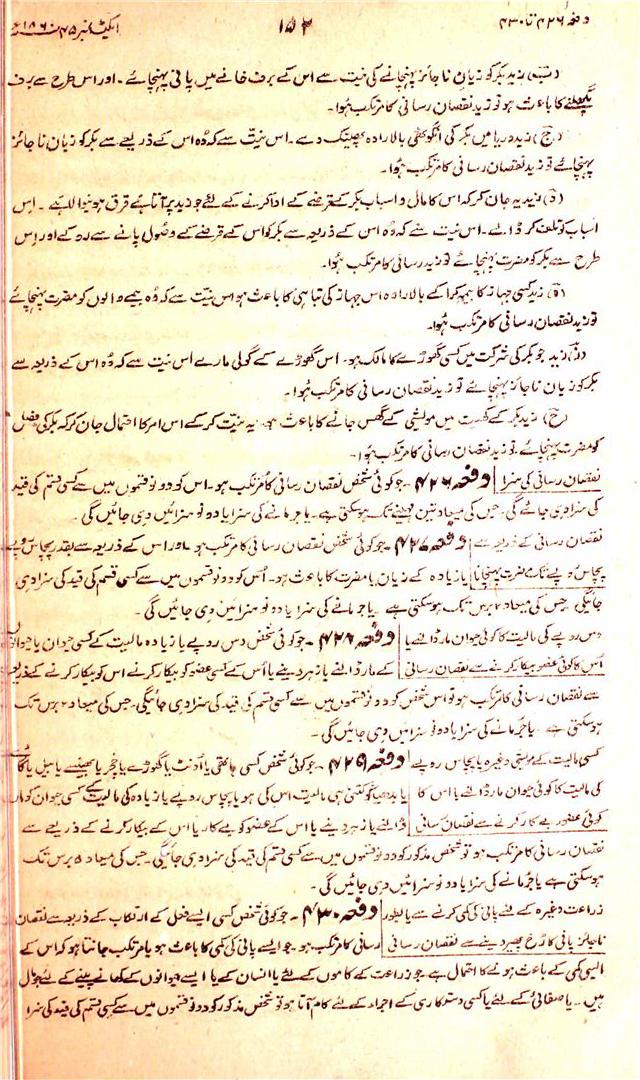 دفعہ ۴۲۶ تا ۴۳۰ ۱۵۲ ایکٹ نمبر ۴۵ ۱۸۶۰ء
زید بکر کو زیان ناجائز پہنچانے کی نیت سے اس کے برف خانے میں پانی پہنچائے ۔ اور اس طرح سے برف
پگھلنے کا باعث ہو تو زید نقصان رسانی کا مرتکب ہُوا۔
(ج) زید دریا میں بکر کی انگوٹھی بالارادہ پھینک دے ۔ اس نیت سے کہ وُہ اس کے ذریعے سے بکر کو زیان ناجائز
پہنچائے تو زید نقصان رسانی کا مرتکب ہوا۔
(د) زید یہ جان کر کہ اس کا مال و اسباب بکر کے قرضے کے ادا کرنے کے لئے جو زید پر آتا ہے قرق ہونیوالا ہے ۔ اس
اسباب کو تلف کر ڈالے ۔ اس نیت سے کہ وُہ اس کے ذریعہ سے بکر کو اس کے قرضے کے وصُول پانے سے روکے اور اِس
طرح سے بکر کو مضرت پہنچائے تو زید رسانی کا مرتکب ہُوا۔
(ہ) زید کسی جہاز کا بیمہ کرا کے بالارادہ اس جہاز کی تباہی کا باعث ہو اس نیت سے کہ وُہ بیمے والوں کو مضرت پہنچائے
تو زید نقصان رسانی کا مرتکب ہُوا۔
(و) زید جو بکر کی شرکت میں کسی گھوڑے کا مالک ہو ۔ اس گھوڑے کے گولی مارے اس نیت سے کہ وُہ اس کے ذریعہ سے
بکر کو زیان ناجائز پہنچائے تو زید نقصان رسانی کا مرتکب ہُوا ۔
(ح) زید بکر کے کھیت میں مویشی کے گھس جانے کا باعث ہو یہ نیت کر کے اس امر کا احتمال جان کر کہ بکر کی فصل
کو مضرت پہنچائے تو زید نقصان رسانی کا مرتکب ہُوا ۔
نقصان رسانی کی سزا دفعہ ۴۲۶ ۔ جو کوئی شخص نقصان رسانی کا مُرتکب ہو ۔ اس کو دونو قسموں میں سے کسی قسم کی قید
کی سزا دی جائے گی ۔ جس کی میعاد تین مہینے تک ہوسکتی ہے ۔ یا جرمانے کی سزا یا دونو سزائیں دی جائیں گی ۔
نقصان رسانی کے ذریعہ سے دفعہ ۴۲۷ ۔ جو کوئی شخص نقصان رسانی کا مرتکب ہو اور اس کے ذریعہ سے بقدر پچاس روپے
پچاس روپے تک مضرت پہنچانا یا زیادہ کے زیان یا مضرت کا باعث ہو ۔ اُس کو دونو قسموں میں سے کسی قسم کی قید کی سزا دی
جائیگی جس کی میعاد ۲ برس تک ہوسکتی ہے یا جرمانے کی سزا یا دونو سزائیں دی جائیں گی ۔
دس روپے کی مالیت کا کوئی حیوان مار ڈالنے یا دفعہ ۴۲۸ ۔ جو کوئی شخص دس روپے یا زیادہ مالیت کے کسی حیوان یا حیوانوں
اُس کا کوئی عضو بیکار کرنے سے نقصان رسانی کے مار ڈالنے یا زہر دینے یا اُس کے کسی عضو کو بیکار کرنے اس کو بیکار کرنے کے ذریعہ
سے نقصان رسانی کا مرتکب ہو تو اس شخص کو دونو قسموں میں سے کسی قسم کی قید کی سزا دی جائیگی ۔ جس کی میعاد ۲ برس تک
ہوسکتی ہے ۔ یا جرمانے کی سزا یا دونو سزائیں دی جائیں گی ۔
کسی مالیت کے مویشی وغیرہ یا پچاس روپے دفعہ ۴۲۹ ۔ جو کوئی شخص کسی ہاتھی یا اُونٹ یا گھوڑے یا خچر یا بھینسے یا بیل یا گائے
کی مالیت کا کوئی حیوان مار ڈالنے یا اس کا یا بدھیا کو کتنی ہی مالیت اس کی ہو یا پچاس روپے یا زیادہ کی مالیت کے کسی حیوان کو مار
کوئی عضو بے کار کرنے سے نقصان رسانی ڈالنے یا زہر دینے یا اس کے عضو کو بے کار یا اس کے بیکار کرنے کے ذریعے سے
نقصان رسانی کا مرتکب ہو تو شخص مذکور کو دونو قسموں میں سے کسی قسم کی قید کی سزا دی جائیگی ۔ جس کی میعاد ۵ برس تک
ہوسکتی ہے یا جرمانے کی سزا یا دونو سزائیں دی جائیں گی ۔
زراعت وغیرہ کے لئے پانی کی کمی کرنے سے یا بطور دفعہ ۴۳۰ ۔ جو کوئی شخص کسی ایسے فعل کے ارتکاب کے ذریعہ سے نقصان
ناجائز پانی کا رُخ پھیر دینے سے نقصان رسانی رسانی کا مرتکب ہو ۔ جو ایسے پانی کی کمی کا باعث ہو یا مرتکب جانتا ہو کہ اس کے
ایسی کمی کے باعث ہونے کا احتمال ہے جو زراعت کے کاموں کے لئے یا انسان کے یا ایسے حیوانوں کے کھانے پینے کے لئے جو مال
ہیں ۔ یا صفائی کے لئے یا کسی دستکاری کے اجراء کے لئے کام آتا ہو تو شخص مذکور کو دونو قسموں میں سے کسی قسم کی قید کی سزا